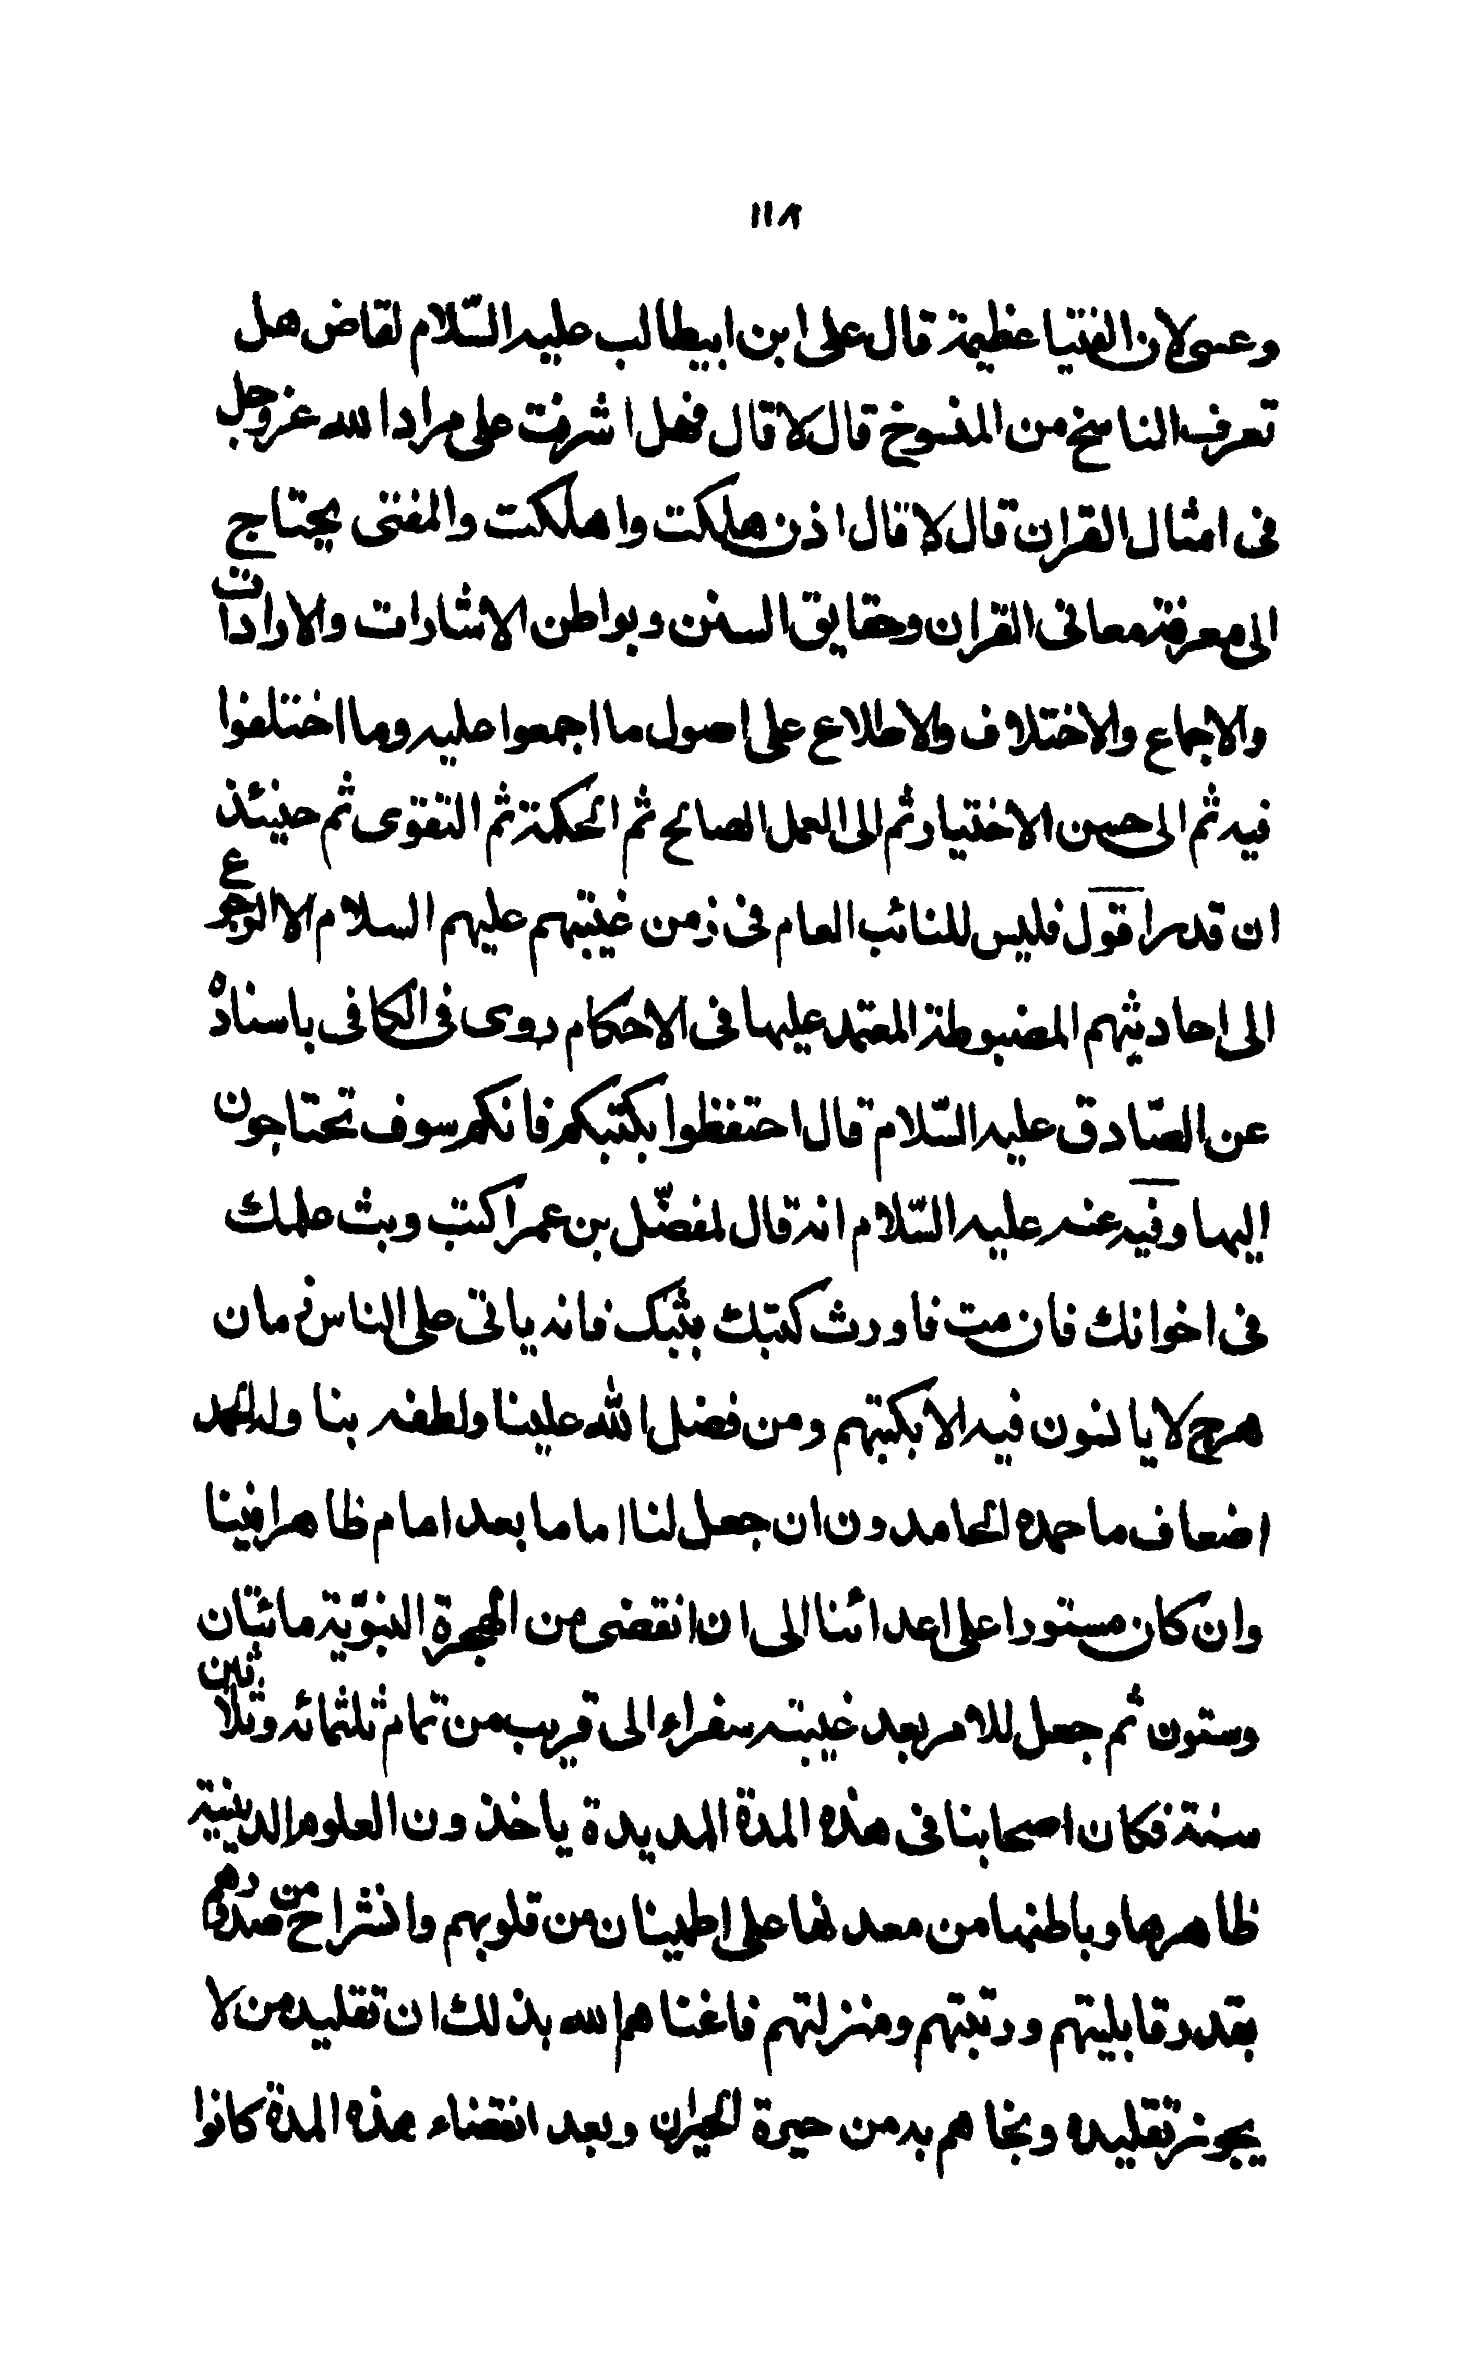 ١١٨
وعسى لان الفتيا عظيمة قال على ابن ابيطالب عليه السّلام لقاض هل
تعرف الناسخ من المنسوخ قال لا قال فهل اشرفت على مراد الله عز وجل
فى امثال القران قال لا قال اذن هلكت واهلكت والمفتى يحتاج
الى معرفة معانى القران وحقايق السنن وبواطن الاشارات والارادات
والاجماع والاختلاف والاطلاع على اصول ما اجمعوا عليه وما اختلفوا
فيه ثم الى حسن الاختيار ثم الى العمل الصالح ثم الحكمة ثم التقوى ثم حينئذ
ان قدر اقول فليس للنائب العام فى زمن غيبتهم عليهم السلام الا الرجوع
الى احاديثهم المضبوطة المعتمد عليها فى الاحكام روى فى الكافى باسناده
عن الصّادق عليه السّلام قال احتفظوا بكتبكم فانكم سوف تحتاجون
اليها وفيه عنه عليه السّلام انه قال لمفضّل بن عمر اكتب وبث علمك
فى اخوانك فان مت فاورث كتبك بنيك فانه ياتى على الناس زمان
هرج لا يانسون فيه الا بكتبهم ومن فضل الله علينا ولطفه بنا وله الحمد
اضعاف ما حمده الحامدون ان جعل لنا اماما بعد امام ظاهرا فينا
وان كان مستورا على اعدائنا الى ان انقضى من الهجرة النبويّة مائتان
وستون ثم جعل للامر بعد غيبته سفراء الى قريب من تمام ثلثمائه وثلاثين
سنة فكان اصحابنا فى هذه المدة المديدة ياخذون العلوم الدينية
ظاهرها وباطنها من معدنها على اطمينان من قلوبهم وانشراح من صدورهم
بقدر قابليتهم ورتبتهم ومنزلتهم فاغناهم الله بذلك ان تقليد من لا
يجوز تقليده ونجاهم به من حيرة الحيران وبعد انقضاء هذه المدة كانوا